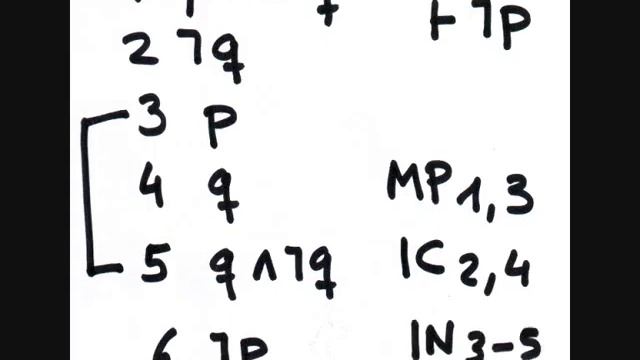 ⊢ ¬p
2 ¬q
3 p
4 q MP 1,3
5 q ∧ ¬q IC 2,4
6 ¬p IN 3-5